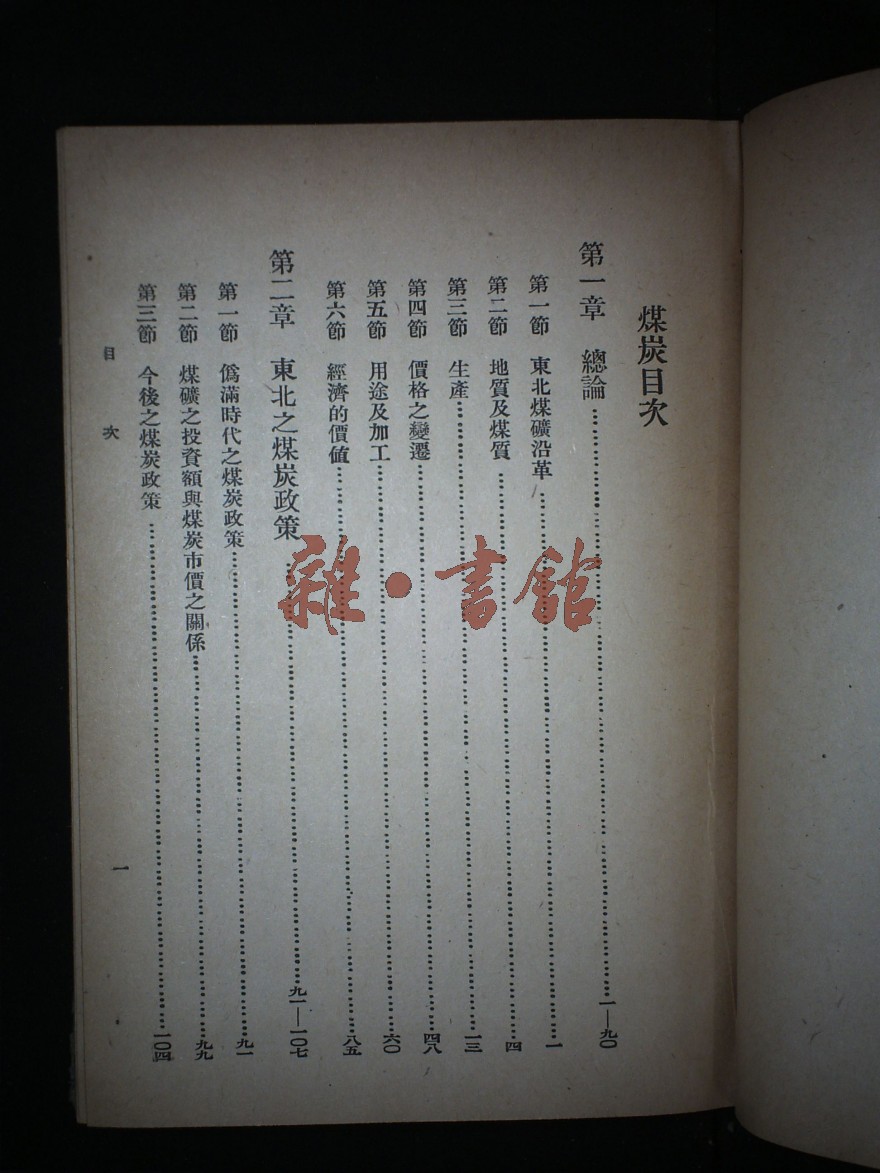 煤炭目次
第一章 總論……一—九〇
第一節 東北煤礦沿革……一
第二節 地質及煤質……四
第三節 生產……一三
第四節 價格之變遷……四八
第五節 用途及加工……六〇
第六節 經濟的價値……八五
第二章 東北之煤炭政策……九一—一〇七
第一節 僞滿時代之煤炭政策……九一
第二節 煤礦之投資額與煤炭市價之關係……九九
第三節 今後之煤炭政策……一〇四
目次
一
雜·書館